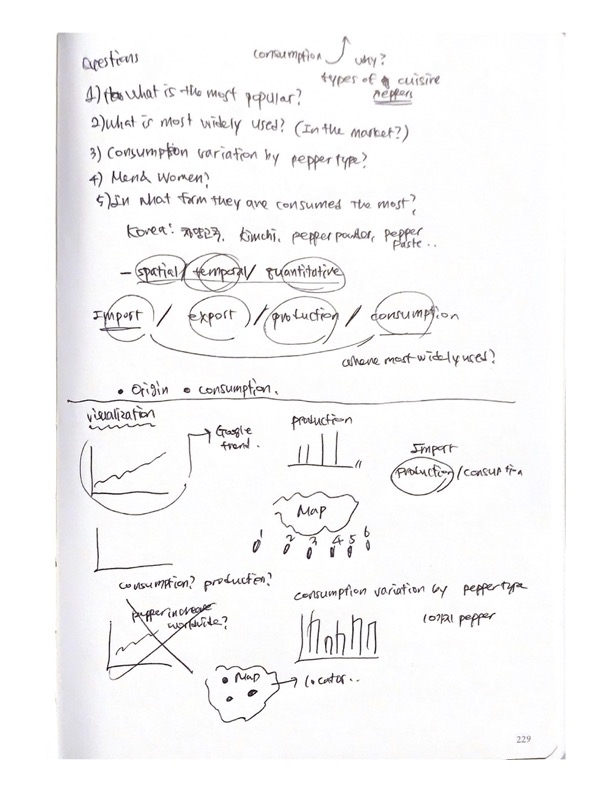 Questions
consumption why?
types of cuisine
peppers
1) What is the most popular?
2) What is most widely used? (In the market?)
3) Consumption variation by pepper type?
4) Men & Women?
5) In what form they are consumed the most?
Korea: kimchi, pepper powder, pepper
paste..
- spatial / temporal / quantitative
Import / export / production / consumption
where most widely used?
• Origin • consumption.
visualization
Google
trend.
production
Import
production / consumption
Map
1 2 3 4 5 6
consumption? production?
consumption variation by pepper type
10가지 pepper
pepper increase
worldwide?
Map
locator..
229